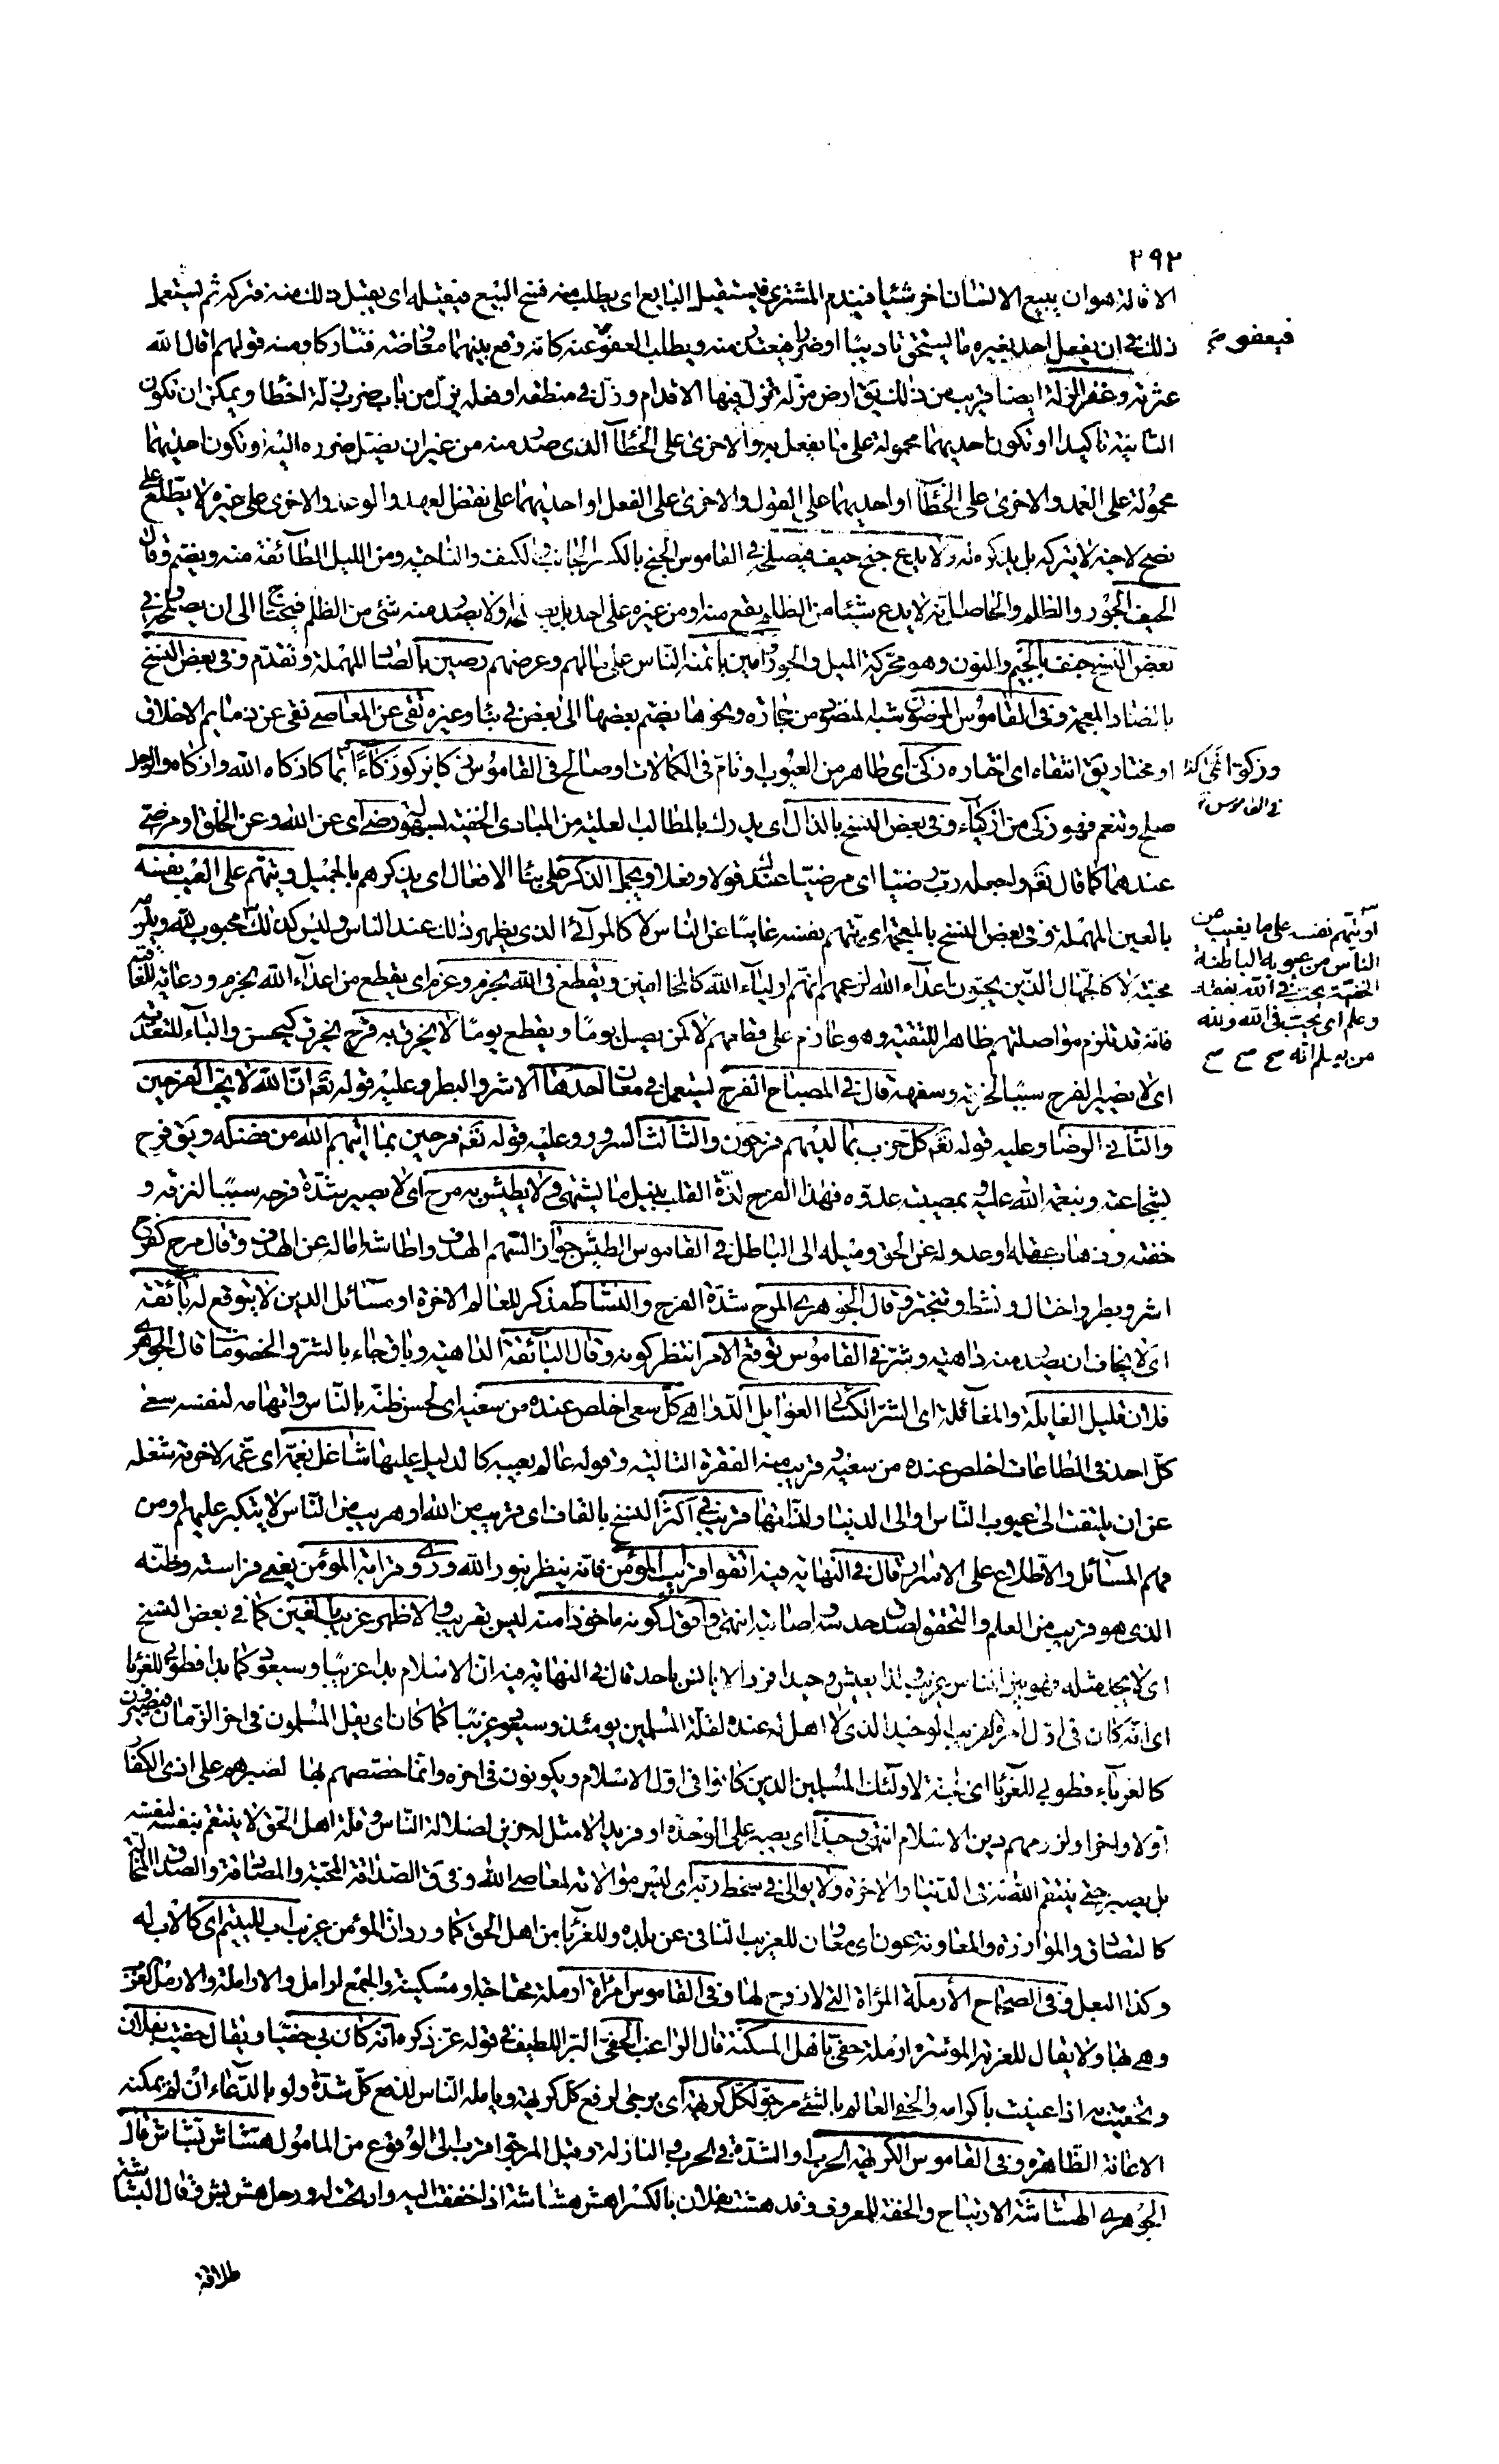 ٢٩٢
الاقالة هو ان يبيع الانسان اخر شيئا فيندم المشترى فيستقيل البايع اى يطلب منه فسخ البيع فيقيله اى يقبل ذلك منه فتركه ثم يستعمل
ذلك فى ان يفعل احد بغيره ما يستحق تاديبا او ضررا فيعتذر منه ويطلب العفو عنه كانه وقع بينهما معاوضة فتتاركا ومنه قولهم اقال الله
فيعفو م
عثرته وغفر الزلة ايضا قريب من ذلك يق ارض مزلة تزل فيها الاقدام وزل فى منطقه او فعله يزل من باب ضرب زلة اخطا ويمكن ان تكون
الثانية تاكيدا او تكون احديهما محمولة على ما يفعل به والاخرى على الخطآ الذى صدر منه من غير ان يصل ضرره اليه او تكون احديهما
محمولة على العمد والاخرى على الخطآ او احديهما على القول والاخرى على الفعل او احديهما على نقض العهد والوعد والاخرى على غيره لا يطلع على
نصح لاحد لا يتركه بل يذكره له ولا يدع جنح حيف فيصلحه فى القاموس الجنح بالكسر الجانب والكنف والناحية ومن الليل الطآئفة منه ويضم وقال
الحيف الجور والظلم والحاصل انه لا يدع شيئا من الظلم يقع منه او من غيره على احد بل يصلحه او لا يصدر منه شئ من الظلم فيحتاج الى ان يصلحه وفى
بعض النسخ جنف بالجيم والنون وهو محركة الميل والجور امين ياتمنه الناس على مالهم وعرضهم رصين بالصاد المهملة وتقدم وفى بعض النسخ
بالضاد المعجمة وفى القاموس المرضون شبه المنضود من حجارة ونحوها يضم بعضها الى بعض فى بناء وغيره تقى عن المعاصى نقى عن ذمايم الاخلاق
او مختار يق انتقاه اى اختاره زكى اى طاهر من العيوب او نام فى الكمالات او صالح فى القاموس زكا يزكو زكآءً نما كازكاه الله وازكا والرجل
وزكوة انمى كذا
فى القاموس
صلح وتنعم فهو زكى من ازكيآء وفى بعض النسخ بالذال اى يدرك بالمطالب العلية من المبادى الخفية بسهولة رضى اى عن الله وعن الخلق او مرضى
عندهما كما قال تعم واجعله رب رضيا اى مرضيا عندك قولا وفعلا ويجمل الذكر على بناء الافعال اى يذكرهم بالجميل ويتهم على العيب نفسه
بالعين المهملة وفى بعض النسخ بالمعجمة اى يتهم نفسه غايبا عن الناس لا كالمرآئى الذى يظهر ذلك عند الناس وليس كذلك
او يتهم نفسه على ما يغيب من
الناس من عيوبه الباطنة
الخفية يحب فى الله بفقه
وعلم اى يحب فى الله ولله
من يعلم انه
محبوب لله ويلزم
محبته لا كالجهال الذين يحبون اعدآء الله لزعمهم انهم اوليآء الله كالمخالفين ويقطع فى الله بحزم وعزم اى يقطع من اعدآء الله بحزم ورعاية للعاقبة
فانه قد تلزم مواصلتهم ظاهرا للتقية وهو عازم على قطعهم لا كمن يصل يوما ويقطع يوما لا يخرق به فرح يخرق كيحسن والبآء للتعدية
اى لا يصير الفرح سببا لخرقه وسفهه قال فى المصباح الفرح يستعمل فى معان احدها الاشر والبطر وعليه قوله تعم ان الله لا يحب الفرحين
والثانى الرضا وعليه قوله تعم كل حزب بما لديهم فرحون والثالث السرور وعليه قوله تعم فرحين بما اتيهم الله من فضله ويق فرح
بشجاعته وبنعمة الله عليه وبمصيبة عدوه فهذا الفرح لذة القلب بنيل ما يشتهى ولا يطيش به مرح اى لا يصير شدة فرحه سببا لنزقه و
خفته وذهاب عقله او عدوله عن الحق وميله الى الباطل فى القاموس الطيش جواز السهم الهدف واطاشه اماله عن الهدف وقال مرح كفرح
اشر وبطر واختال ونشط وتبختر وقال الجوهرى المرح شدة الفرح والنشاط مذكر للعالم الاخرة او مسائل الدين لا يتوقع له بآئقة
اى لا يخاف ان يصدر منه داهية وشر فى القاموس توقع الامر انتظر كونه وقال البآئقة الداهية وباق جاء بالشر والخصومات قال الجوهرى
فلان قليل الغايلة والمغالة اى الشر الكسائى الغوايل الدواهى كل سعى اخلص عنده من سعيه اى لحسن ظنه بالناس واتهامه لنفسه سعى
كل احد فى الطاعات اخلص عنده من سعيه وقريب منه الفقرة التالية وقوله عالم بعيبه كالدليل عليها شاغل بغمه اى غمه لاخرته شغله
عن ان يلتفت الى عيوب الناس او الى الدنيا ولذاتها قريب فى اكثر النسخ بالقاف اى قريب من الله او قريب من الناس لا يتكبر عليهم او من
فهم المسآئل والاطلاع على الاسرار قال فى النهاية فيه اتقوا قراب المؤمن فانه ينظر بنور الله وروى قرابة المؤمن يعنى فراسته وظنه
الذى هو قريب من العلم والتحقق لصدق حدسه واصابته انتهى واقول كونه ماخوذا منه ليس بقريب والاظهر غريب بالغين كما فى بعض النسخ
اى لا يجد مثله فهو بين الناس غريب لذا يعيش وحيدا فردا لا يانس باحد قال فى النهاية فيه ان الاسلام بدا غريبا وسيعود كما بدا فطوبى للغربا
اى انه كان فى اول امره كالغريب الوحيد الذى لا اهل له عنده لقلة المسلمين يومئذ وسيعود غريبا كما كان اى يقل المسلمون فى اخر الزمان فيصيرون
كالغربآء فطوبى للغربا اى الجنة لاولئك المسلمين الذين كانوا فى اول الاسلام ويكونون فى اخره وانما خصهم بها لصبرهم على اذى الكفار
اولا واخرا ولزومهم دين الاسلام انتهى وحيدا اى يصبر على الوحدة او فريد لا مثل له حزين لضلالة الناس وقلة اهل الحق لا ينتقم بنفسه لنفسه
بل يصبر حتى ينتقم الله له فى الدنيا والاخرة ولا يوالى فى سخط ربه اى ليس موالاته لمعاصى الله وفى ق الصداقة المحبة والمصادقة والصداق المخالة
كالتصادق والموازرة والمعاونة عون اى معان للغريب النائى عن بلده وللغربا من اهل الحق كما ورد ان المؤمن غريب اب لليتيم اى كالاب له
وكذا البعل وفى الصحاح الارملة المرأة التى لا زوج لها وفى القاموس امرأة ارملة محتاجة او مسكينة والجمع ارامل والارملة والارمل العزب
وهى بها ولا يقال للعزبة الموسرة ارملة حفى باهل المسكنة قال الراغب الحفى البر اللطيف فى قوله عز ذكره انه كان بى حفيا ويقال حفيت بفلان
وتحفيت به اذا عنيت باكرامه والحفى العالم بالشئ مرجو لكل كريهة اى يرجى لرفع كل كريهة وياملّه الناس لدفع كل شدة ولو بالدعاء ان لم يمكنه
الاعانة الظاهرة وفى القاموس الكريهة الحرب او الشدة فى الحرب والنازلة وقيل المرجو اقرب الى الوقوع من المامول هشاش بشاش قال
الجوهرى الهشاشة الارتياح والخفة للمعروف وقد هششت بفلان بالكسر اهش هشاشة اذا خففت اليه وارتحت له ورجل هش بش وقال البشاشة
طلاقة